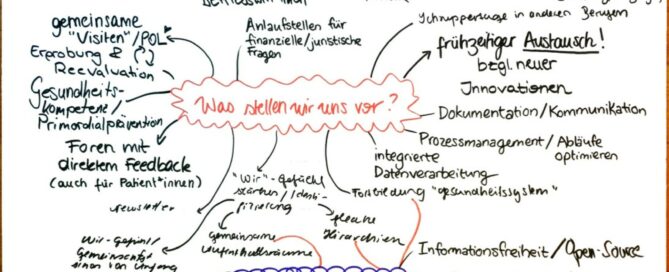 gemeinsame
"Visiten"/POL
Erprobung &
Reevaluation
Gesundheits-
kompetenz/
Primordialprävention
Foren mit
direktem Feedback
(auch für Patient*innen)
Newsletter
Wir-Gefühl/
Anlaufstellen für
finanzielle/juristische
Fragen
Was stellen wir uns vor?
"Wir"-Gefühl
stärken/Identi-
fizierung
gemeinsame
Aufenthaltsräume
flache
Hierarchien
Schnuppertage in anderen Berufen
frühzeitiger Austausch!
bzgl. neuer
Innovationen
Dokumentation/Kommunikation
Prozessmanagement/Abläufe
optimieren
integrierte
Datenverarbeitung
Fortbildung "gesundheitssystem"
Informationsfreiheit/Open-Source